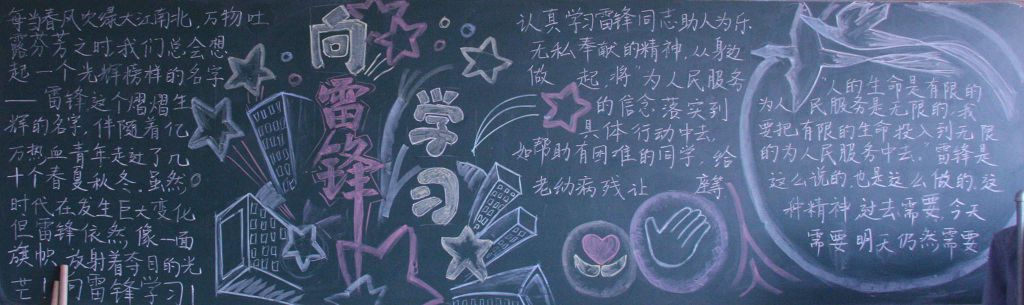 每当春风吹绿大江南北,万物吐
露芬芳之时,我们总会想
起一个光辉榜样的名字
——雷锋这个熠熠生
辉的名字,伴随着亿
万热血青年走过了几
十个春夏秋冬,虽然
时代在发生巨大变化
但雷锋依然像一面
旗帜,放射着夺目的光
芒!向雷锋学习!
向雷锋
学习
认真学习雷锋同志助人为乐
无私奉献的精神,从身边
做起,将"为人民服务
的信念落实到
具体行动中去,
如帮助有困难的同学,给
老幼病残让座等
人的生命是有限的
为人民服务是无限的,我
要把有限的生命投入到无限
的为人民服务中去。"雷锋是
这么说的,也是这么做的,这
种精神,过去需要,今天
需要,明天仍然需要